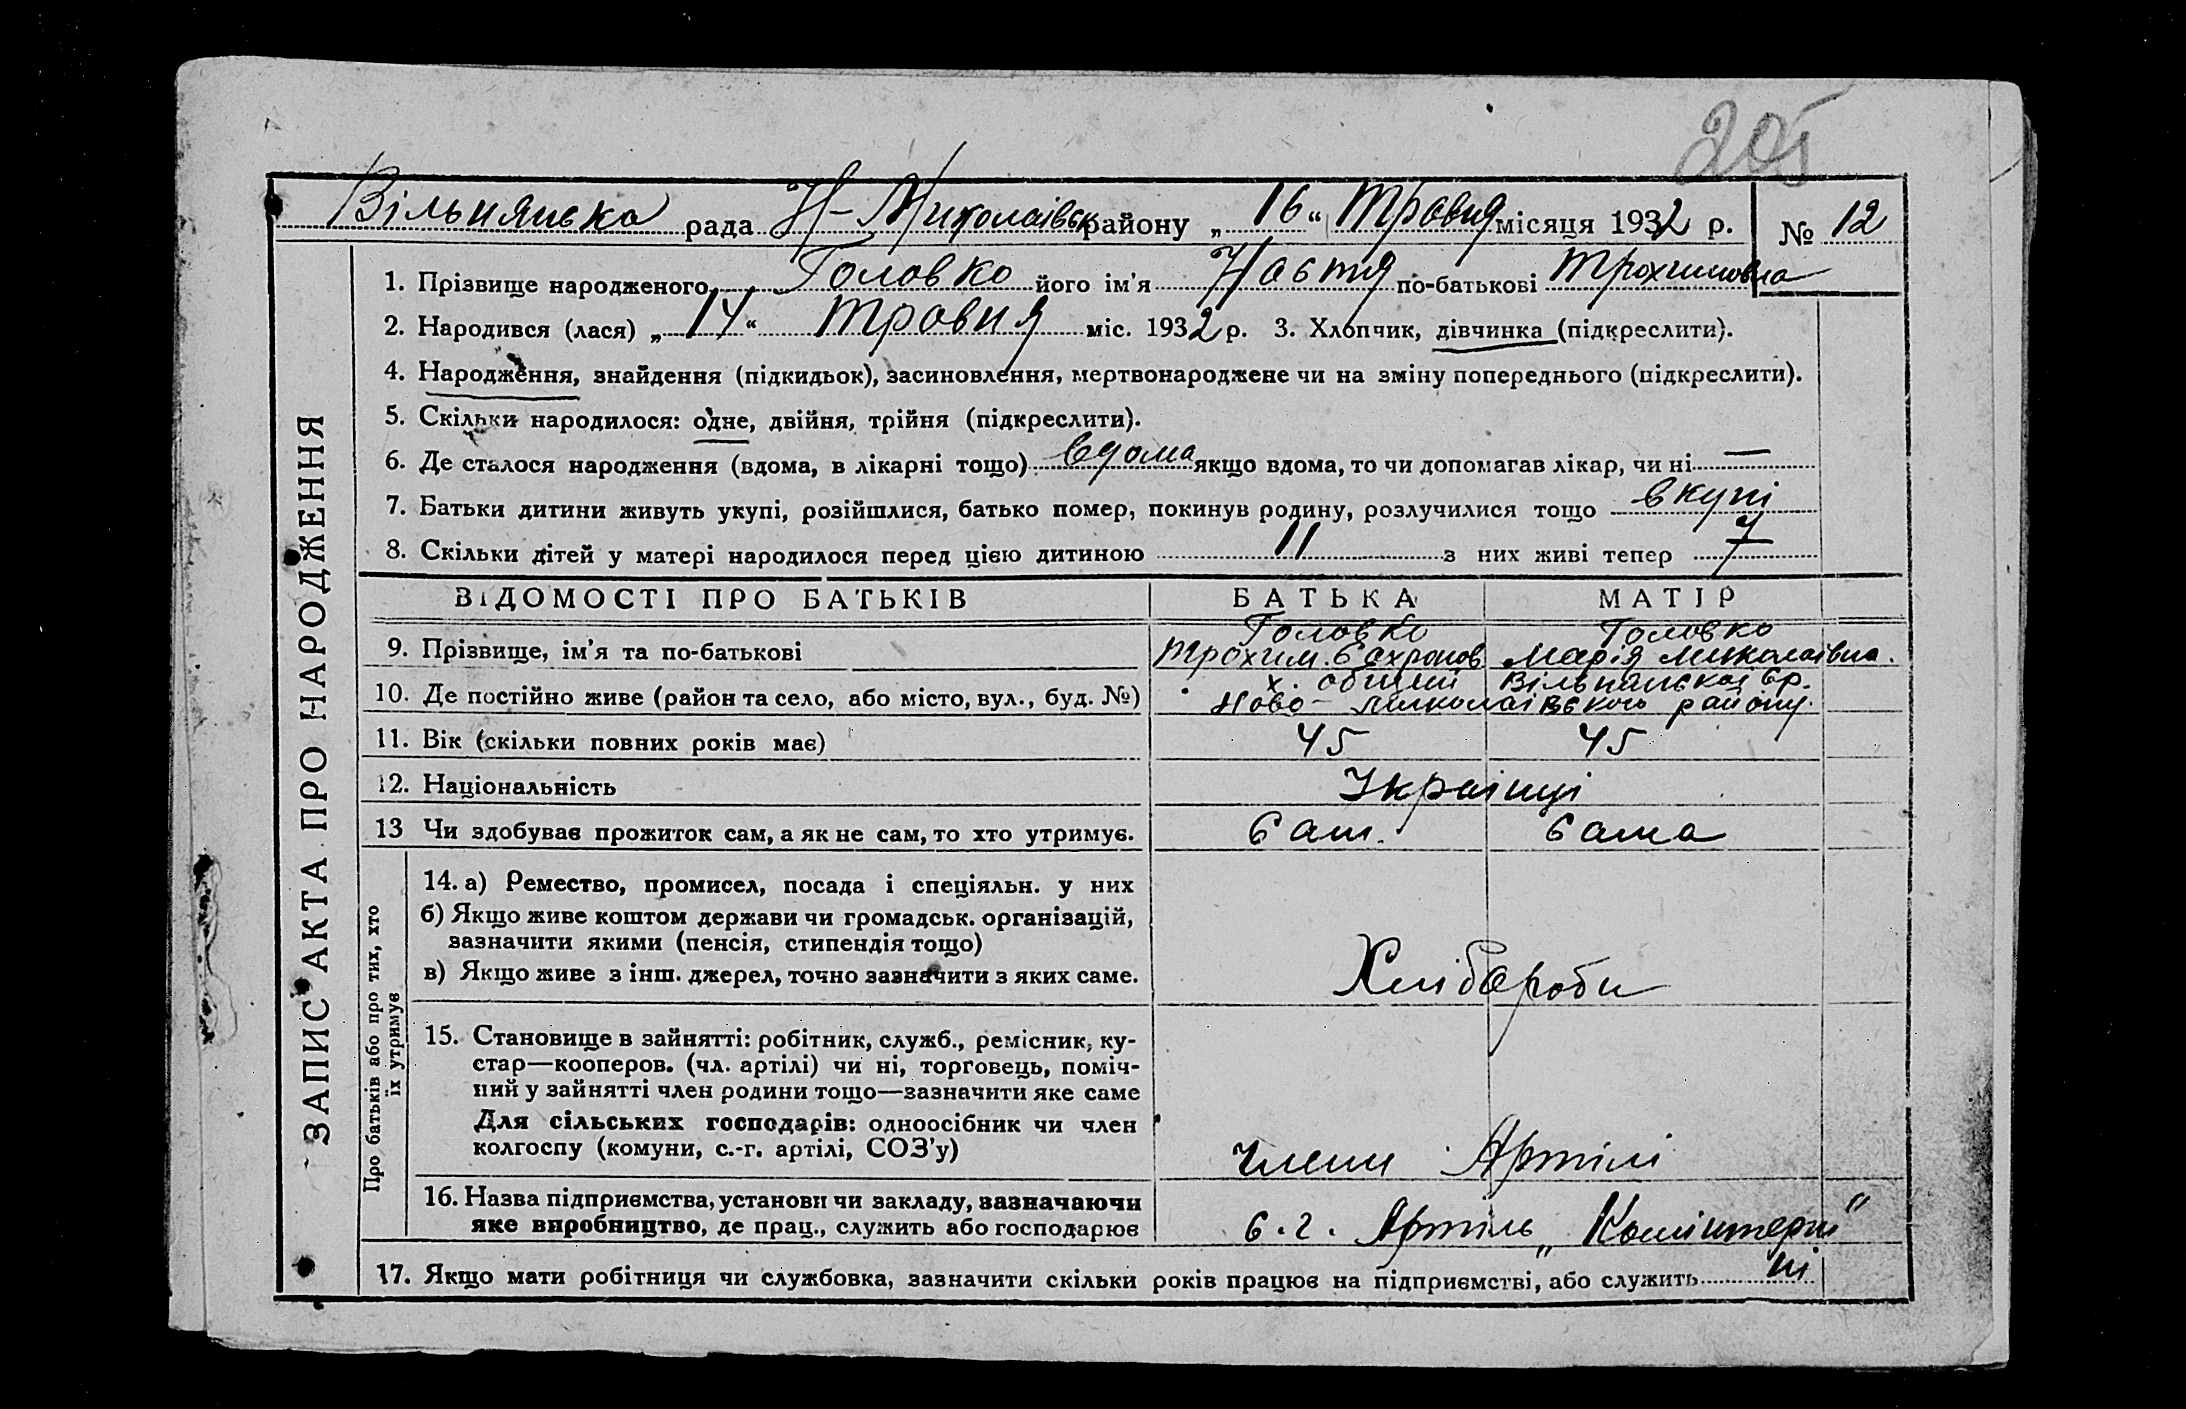 205
Вільнянська рада Н-Миколаївськ району „16“ Травня місяця 1932 р. № 12
ЗАПИС АКТА ПРО НАРОДЖЕННЯ
1. Прізвище народженого Головко його ім'я Настя по-батькові Трохимовна
2. Народився (лася) „14“ травня міс. 1932 р. 3. Хлопчик, дівчинка (підкреслити).
4. Народження, знайдення (підкидьок), засиновлення, мертвонароджене чи на зміну попереднього (підкреслити).
5. Скільки народилося: одне, двійня, трійня (підкреслити).
6. Де сталося народження (вдома, в лікарні тощо) вдома якщо вдома, то чи допомагав лікар, чи ні —
7. Батьки дитини живуть укупі, розійшлися, батько помер, покинув родину, розлучилися тощо вкупі
8. Скільки дітей у матері народилося перед цією дитиною 11 з них живі тепер 7
ВІДОМОСТІ ПРО БАТЬКІВ БАТЬКА МАТІР
Головко Головко
9. Прізвище, ім'я та по-батькові Трохим Сахронов Марія Миколаївна.
х. Вільнянської ср.
10. Де постійно живе (район та село, або місто, вул., буд. №) Ново-Миколаівського району.
11. Вік (скільки повних років має) 45 45
12. Національність Українці
13 Чи здобуває прожиток сам, а як не сам, то хто утримує. Сам. Сама
Про батьків або про тих, хто
їх утримує
14. а) Ремество, промисел, посада і спеціяльн. у них
б) Якщо живе коштом держави чи громадськ. організацій,
зазначити якими (пенсія, стипендія тощо)
в) Якщо живе з інш. джерел, точно зазначити з яких саме. Хлібороби
15. Становище в зайнятті: робітник, служб., ремісник, ку-
стар—кооперов. (чл. артілі) чи ні, торговець, поміч-
ний у зайнятті член родини тощо—зазначити яке саме
Для сільських господарів: одноосібник чи член
колгоспу (комуни, с.-г. артілі, СОЗ'у) Члени Артілі
16. Назва підприємства, установи чи закладу, зазначаючи
яке виробництво, де прац., служить або господарює С.г. Артіль „Комінтерн“
17. Якщо мати робітниця чи службовка, зазначити скільки років працює на підприємстві, або служить ні